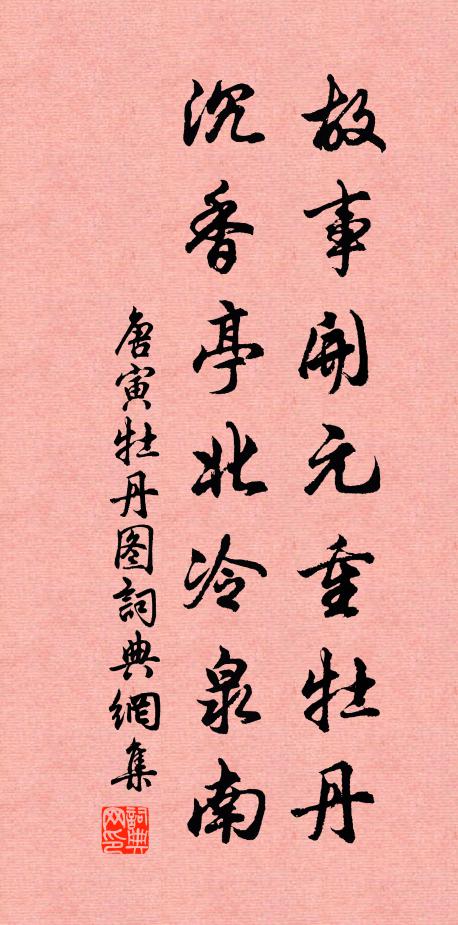 故事開元重牡丹
沉香亭北冷泉南
唐寅牡丹图詞典網集
詞典网印